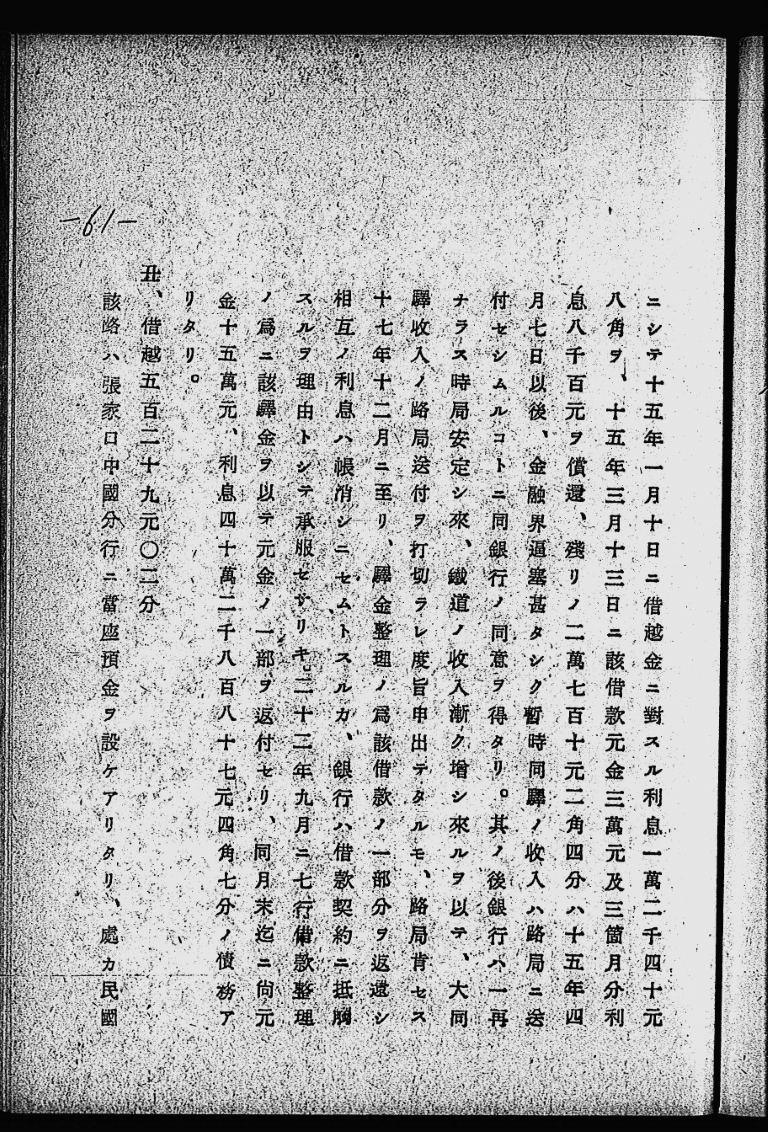 ニシテ十五年一月十日ニ借越金ニ對スル利息一萬二千四十元
八角ヲ、十五年三月十三日ニ該借款元金三萬元及三箇月分利
息八千百元ヲ償還、殘リノ二萬七百十元二角四分ハ十五年四
月七日以後、金融界逼塞甚タシク暫時同驛ノ收入ハ路局ニ送
付セシムルコトニ同銀行ノ同意ヲ得タリ。其ノ後銀行ハ一再
ナラス時局安定シ來、鐵道ノ收入漸ク增シ來ルヲ以テ、大同
驛收入ノ路局送付ヲ打切ラレ度旨申出テタルモ、路局肯セス
十七年十二月ニ至リ、驛金整理ノ爲該借款ノ一部分ヲ返還シ
相互ノ利息ハ帳消シニセムトスルカ、銀行ハ借款契約ニ抵觸
スルヲ理由トシテ承服セサリキ。二十二年九月ニ七行借款整理
ノ爲ニ該驛金ヲ以テ元金ノ一部ヲ返付セリ、同月末迄ニ尙元
金十五萬元、利息四十萬二千八百八十七元四角七分ノ債務ア
リタリ。
丑、借越五百二十九元〇二分
該路ハ張家口中國分行ニ當座預金ヲ設ケアリタリ、處カ民國
-61-